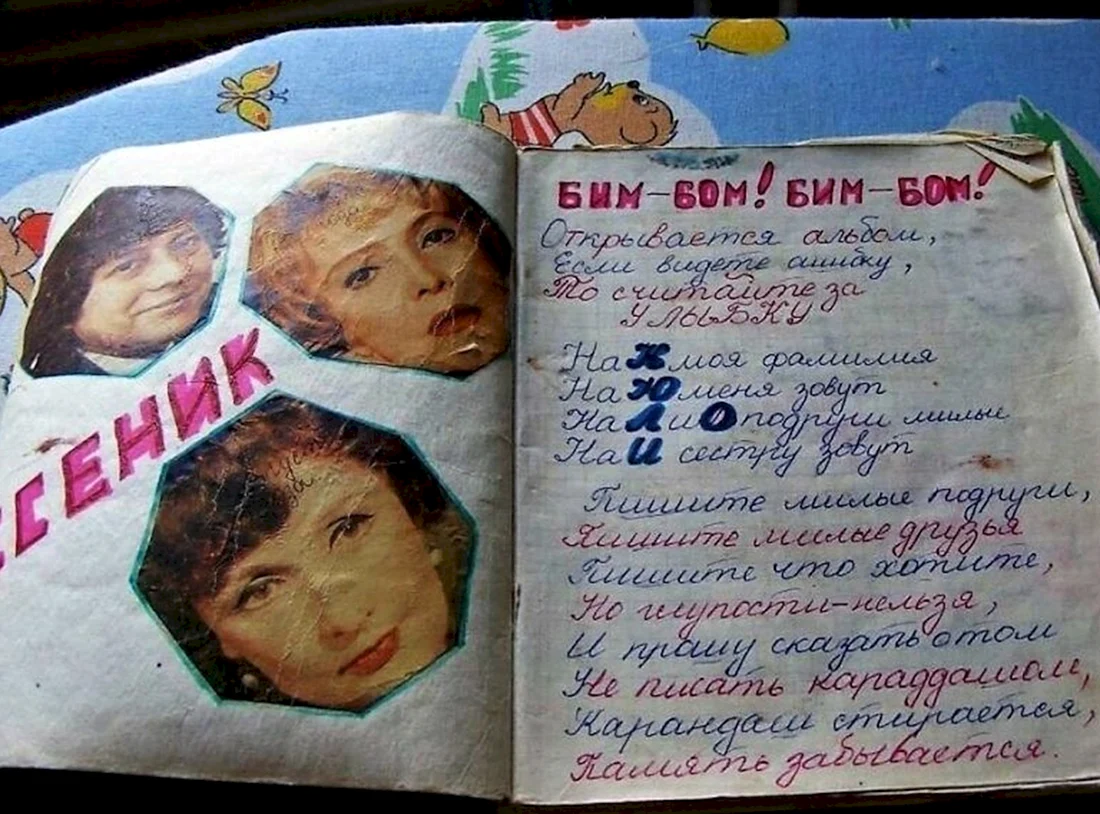 СЕНИК
БИМ-БОМ! БИМ-БОМ!
Открывается альбом,
Если видете ошибку,
То считайте за
УЛЫБКУ
На К моя фамилия
На Ю меня зовут
На Л и О подруги милые
На И сестру зовут
Пишите милые подруги,
Пишите милые друзья
Пишите что хотите,
Но глупости-нельзя,
И прошу сказать о том
Не писать караддашом,
Карандаш стирается,
Память забывается.